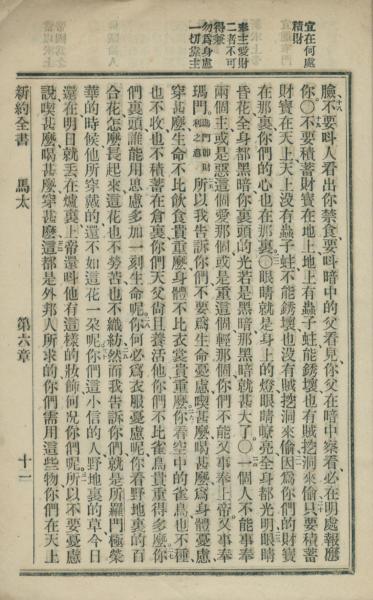 宜在何處
積財
事主愛財
二者不可
得兼
勿爲身慮
一切靠主
臉不要呌人看出你禁食要呌暗中的父看見你父在暗中察看必在明處報應
你〇不要積蓄財寶在地上地上有蟲子蛀能銹壞也有賊挖洞來偷只要積蓄
財寶在天上天上沒有蟲子蛀不能銹壞也沒有賊挖洞來偷因爲你們的財寶
在那裏你們的心也在那裏〇眼睛就是身上的燈眼睛瞭亮全身都光明眼睛
昏花全身都黑暗你裏頭的光若是黑暗那黑暗就甚大了〇一個人不能事奉
兩個主或是惡這個愛那個或是重這個輕那個你們不能又事奉上帝又事奉
瑪門瑪門卽財利之意所以我告訴你們不要爲生命憂慮喫甚麼喝甚麼爲身體憂慮
穿甚麼生命不比飲食貴重麼身體不比衣裳貴重麼你看空中的雀鳥也不種
也不收也不積蓄在倉裏你們天父尙且養活他你們不比雀鳥貴重得多麼你
們裏頭誰能用思慮多加一刻生命呢你何必爲衣服憂慮呢你看野地裏的百
合花怎麼長起來這花也不勞苦也不織紡然而我告訴你們就是所羅門極榮
華的時候他所穿戴的還不如這花一朶呢你們這小信的人野地裏的草今日
還在明日就丟在爐裏上帝還呌他有這樣的妝飾何况你們呢所以不要憂慮
說喫甚麼喝甚麼穿甚麼這都是外邦人所求的你們需用這些物你們在天上
新約全書 馬太 第六章 十一